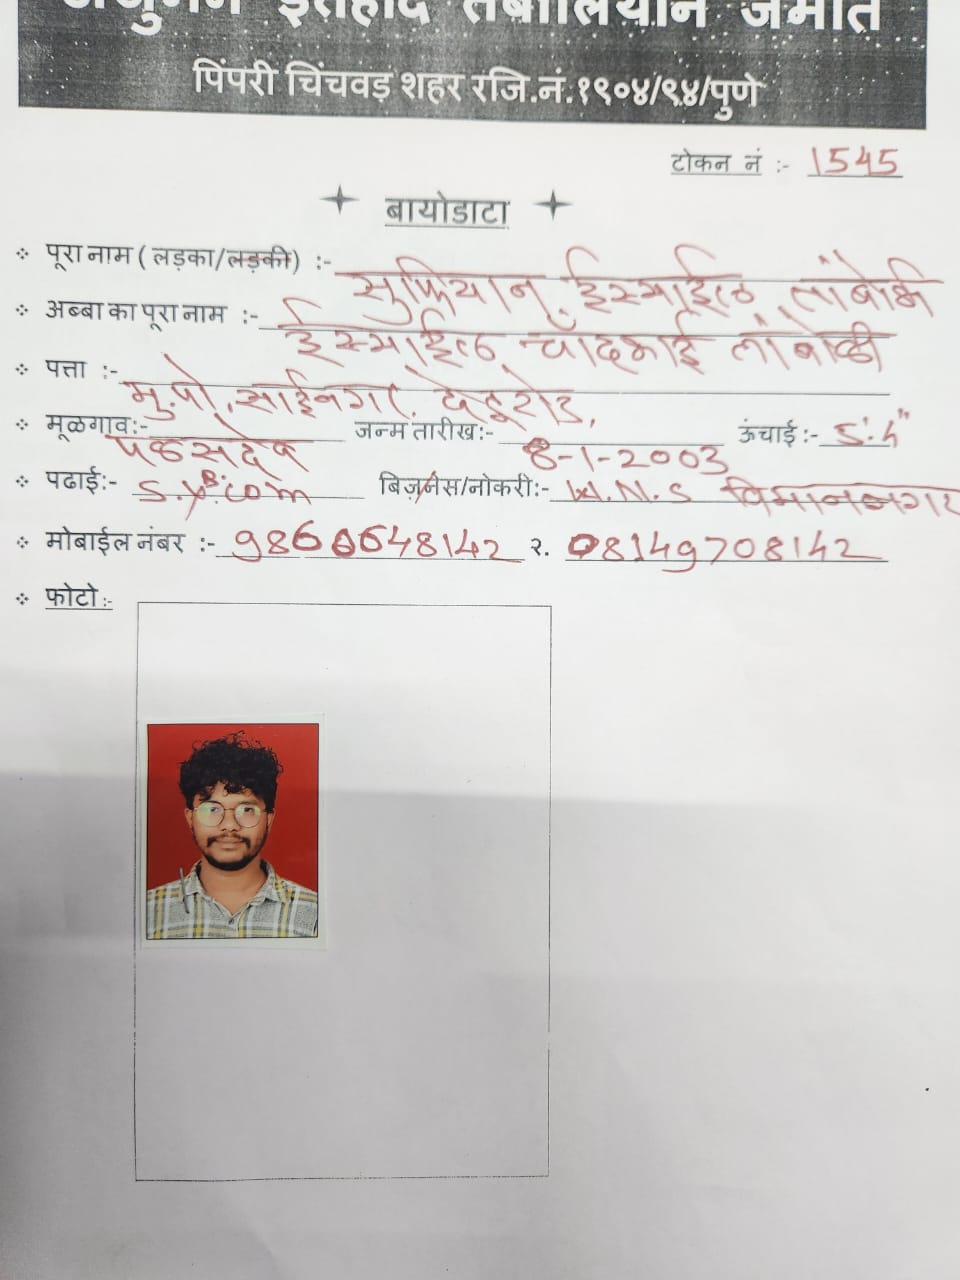 अंजुमन इत्तेहाद तंबोलियान जमात
पिंपरी चिंचवड़ शहर रजि.नं.१९०४/९४/पुणे
टोकन नं :- 1545
बायोडाटा
पूरा नाम ( लड़का/लड़की) :- सुफियान ईस्माईल तांबोळी
अब्बा का पूरा नाम :- ईस्माईल चाँदभाई तांबोळी
पत्ता :- मु.पो. साईनगर, देहूरोड,
मूळगाव:- पळसदेव जन्म तारीख:- 8-1-2003 ऊंचाई :- 5'.4"
पढाई:- S.Y B.com बिज़नेस/नोकरी:- W.N.S विमाननगर
मोबाईल नंबर :- 9860648142 २. 08149708142
फोटो :-